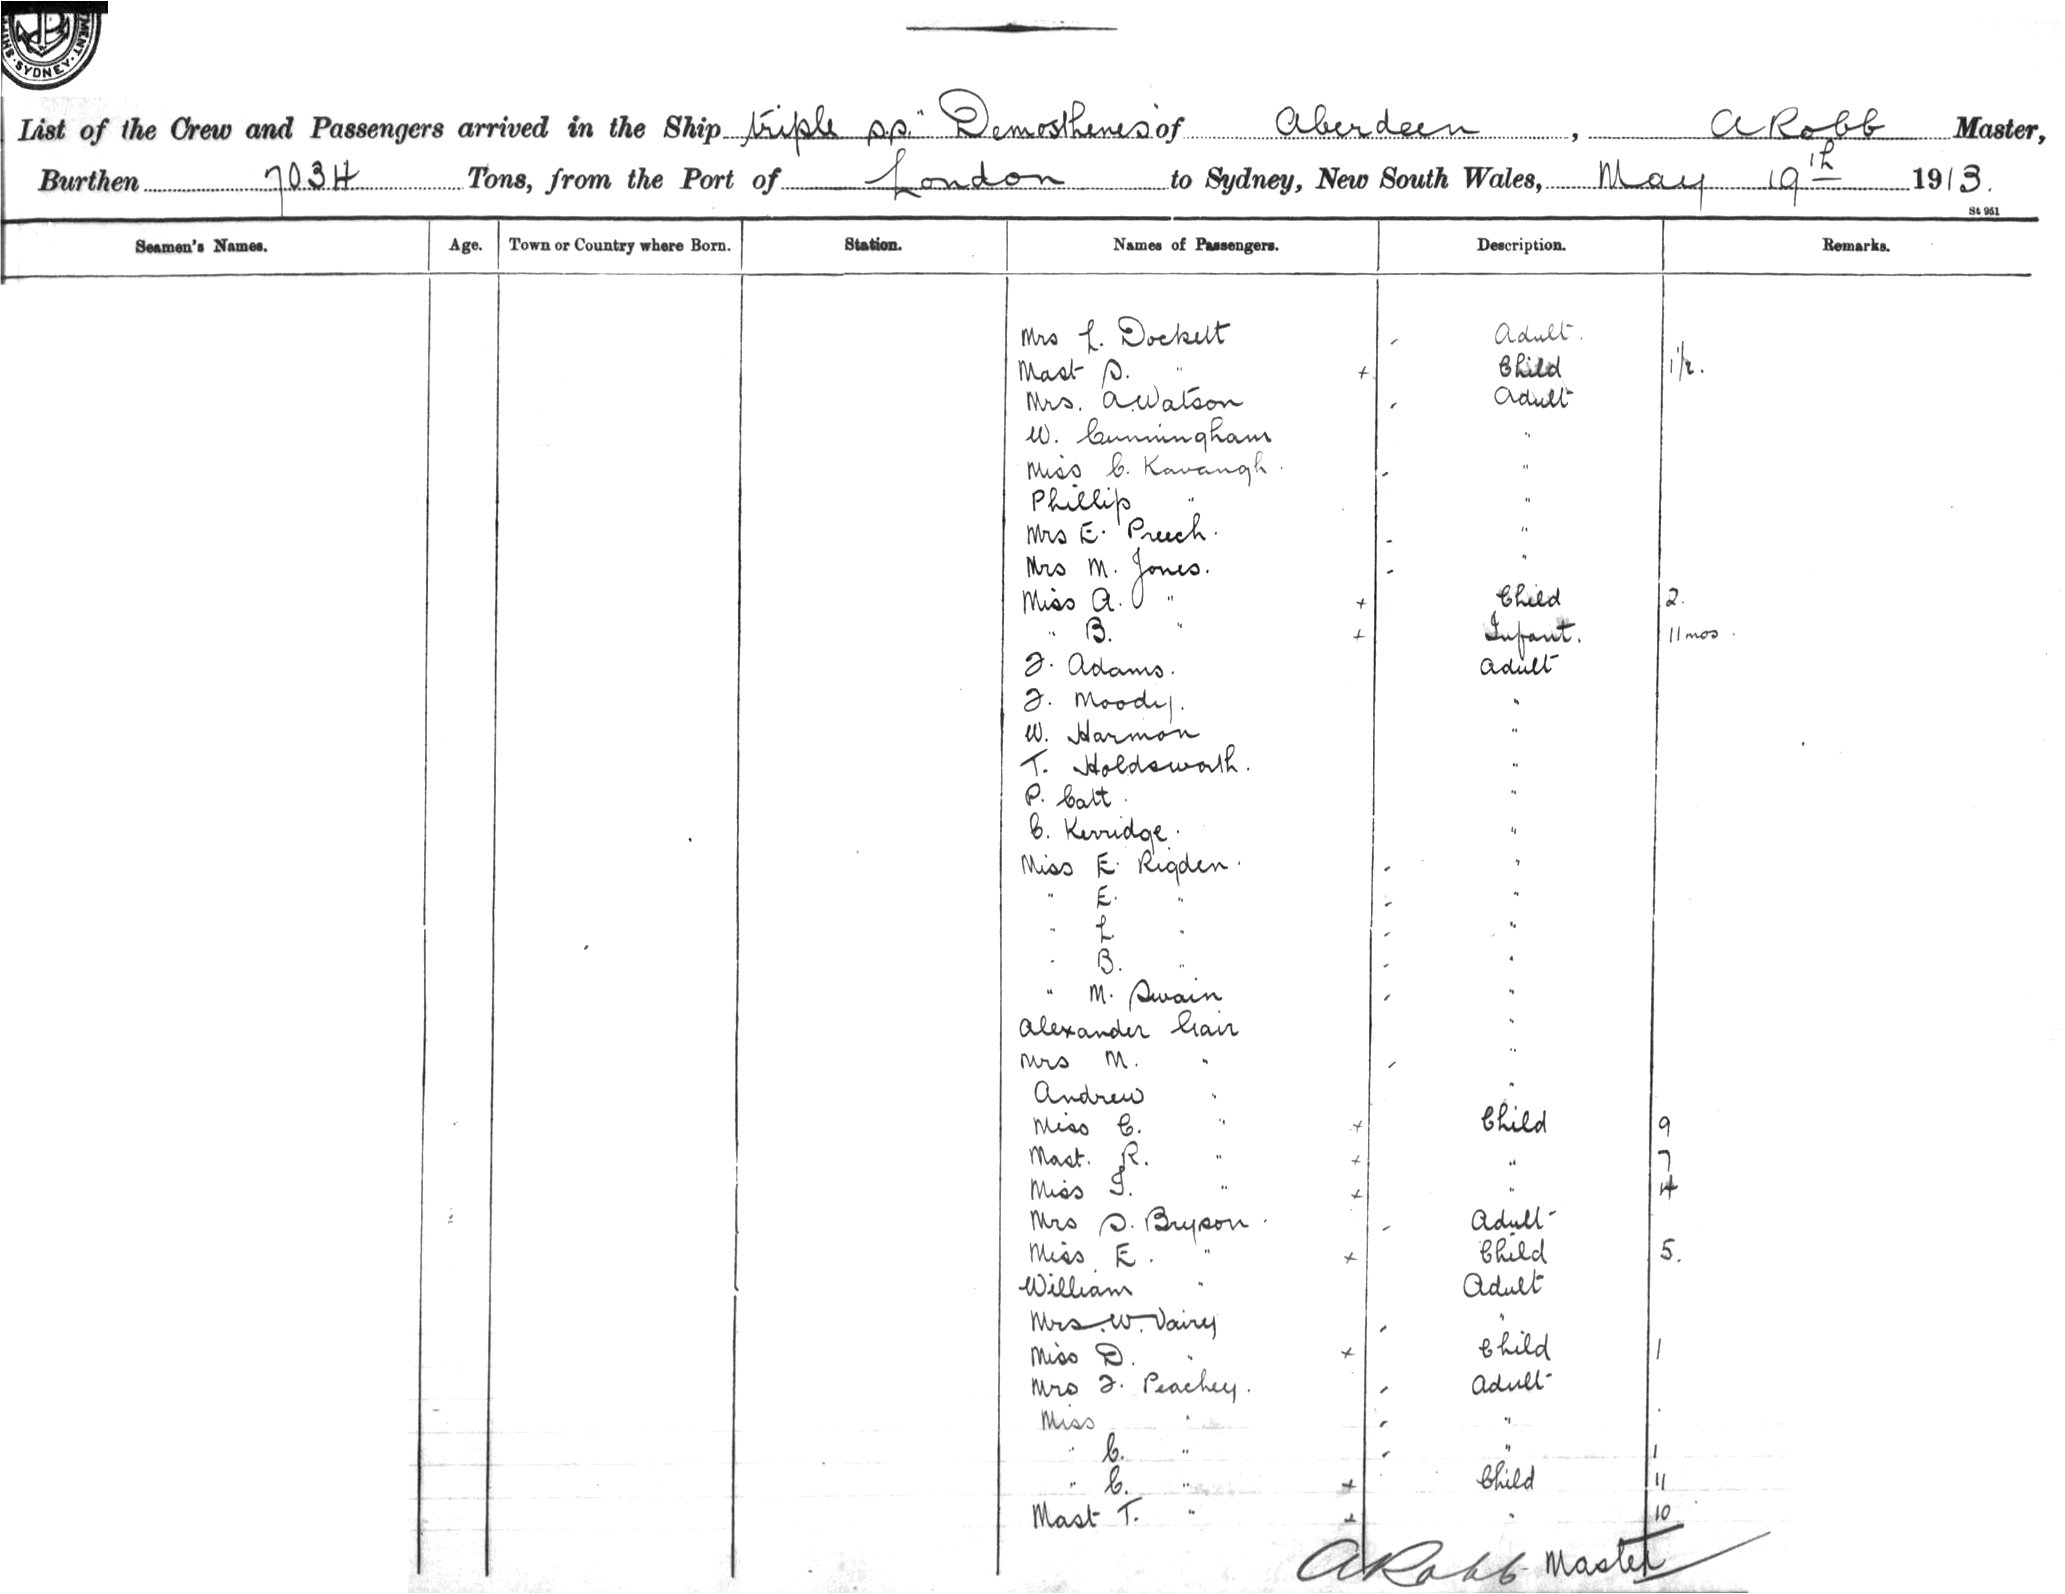 MENT SYDNEY
List of the Crew and Passengers arrived in the Ship triple s.s. "Demosthenes" of Aberdeen, A Robb Master,
Burthen 7034 Tons, from the Port of London to Sydney, New South Wales, May 19th 1913.
St 951
Seamen's Names. Age. Town or Country where Born. Station. Names of Passengers. Description. Remarks.
Mrs L. Dockett Adult.
Mast S. " + Child 1 1/2.
Mrs. A. Watson Adult
W. Cunningham "
Miss C. Kavangh. "
Phillip " "
Mrs E. Preech. "
Mrs M. Jones. "
Miss A. " + Child 2.
" B. " + Infant. 11 mos.
F. Adams. Adult
F. Moody. "
W. Harmon "
T. Holdsworth. "
P. Catt. "
C. Kerridge. "
Miss E. Rigden. "
" E. " "
" L. " "
" B. " "
" M. Swain "
Alexander Gair "
Mrs M. " "
Andrew " "
Miss C. " + Child 9
Mast. R. " + " 7
Miss I. " + " 4
Mrs S. Bryson. Adult
Miss E. " + Child 5.
William " Adult
Mrs. W. Vairy "
Miss D. " + Child 1
Mrs F. Peachey. Adult
Miss " "
" C. " "
" C. " + Child 11
Mast T. " + " 10
A Robb Master